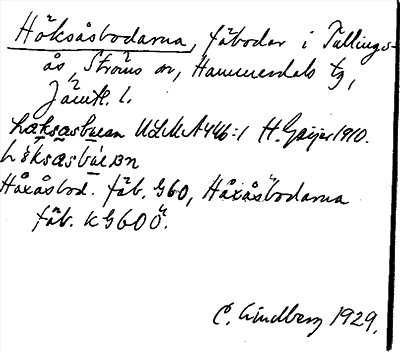 Höksåsbodarna, fäbodar i Tullings-
ås, Ströms sn, Hammerdals tg,
Jämtl. l.
hœksasbuean ULMA 446:1 H. Geijer 1910.
Håxåsbod. fäb. G60, Håxåsbodarna
fäb. KG60Ö.
C. Lindberg 1929.